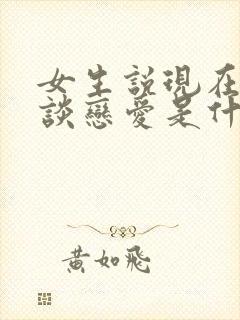 女生說現在
談戀愛是什
黃如飛